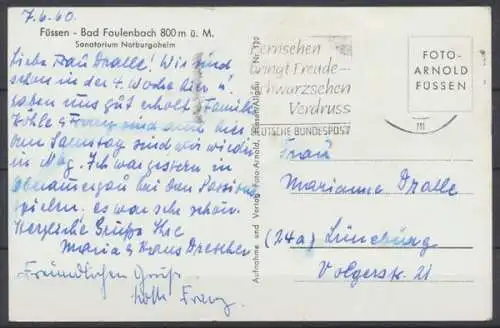 7.6.60.
Füssen - Bad Faulenbach 800 m ü. M.
Sanatorium Notburgaheim
Liebe Frau Dralle! Wir sind
schon in der 4. Woche hier u.
haben uns gut erholt. Familie
Köhle & Franz sind auch hier
den Samstag sind wir wieder
in Mbg. Ich war gestern in
Oberamergau bei den Passions
spielen. es war sehr schön.
Herzliche Grüße Ihre
Maria & Hans Drescher
Freundlichen Gruß
Franz
Aufnahme und Verlag Foto-Arnold, Füssen/Allgäu Nr. 120
Fernsehen
bringt Freude -
Schwarzsehen
Verdruss
DEUTSCHE BUNDESPOST
FOTO-
ARNOLD
FÜSSEN
m
Frau
Marianne Dralle
(24a) Lüneburg
Volgerstr. 21